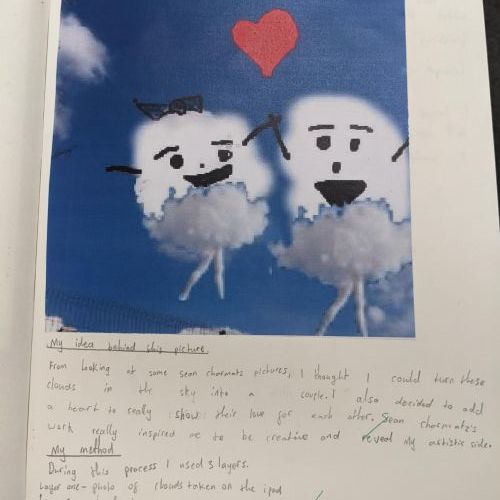 My idea behind this picture.
From looking at some sean charmatz pictures, I thought I could turn these
clouds in the sky into a couple. I also decided to add
a heart to really show their love for each other. Sean charmatz's
work really inspired me to be creative and reveal my artistic side.
My method
During this process I used 3 layers.
Layer one - photo of clouds taken on the ipad